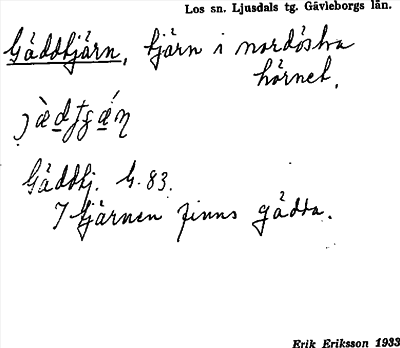 Los sn. Ljusdals tg. Gävleborgs län.
Gäddtjärn, tjärn i nordöstra
hörnet.
Gäddtj. G. 83.
I tjärnen finns gädda.
Erik Eriksson 1933